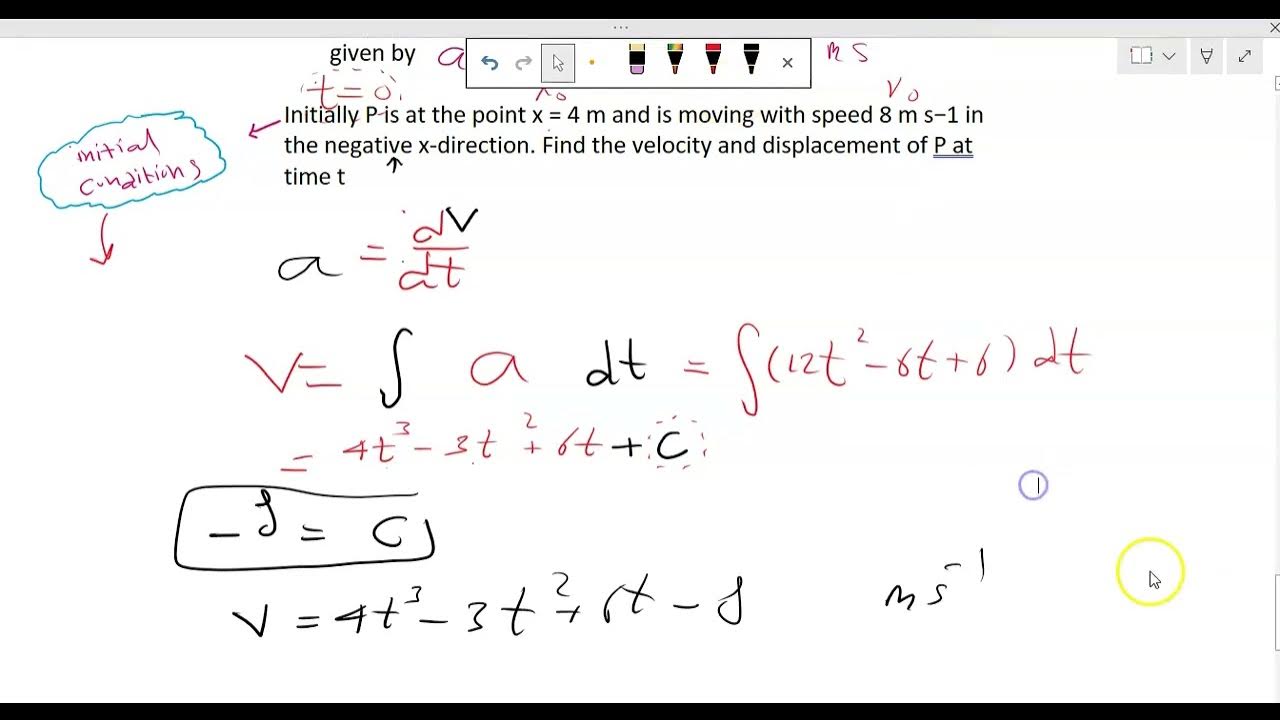 given by a m s
t = 0 x₀ v₀
Initially P is at the point x = 4 m and is moving with speed 8 m s−1 in
the negative x-direction. Find the velocity and displacement of P at
time t
initial
conditions
a = dv/dt
v = ∫ a dt = ∫(12t² − 6t + 6) dt
= 4t³ − 3t² + 6t + C
− 8 = C
v = 4t³ − 3t² + 6t − 8 m s⁻¹